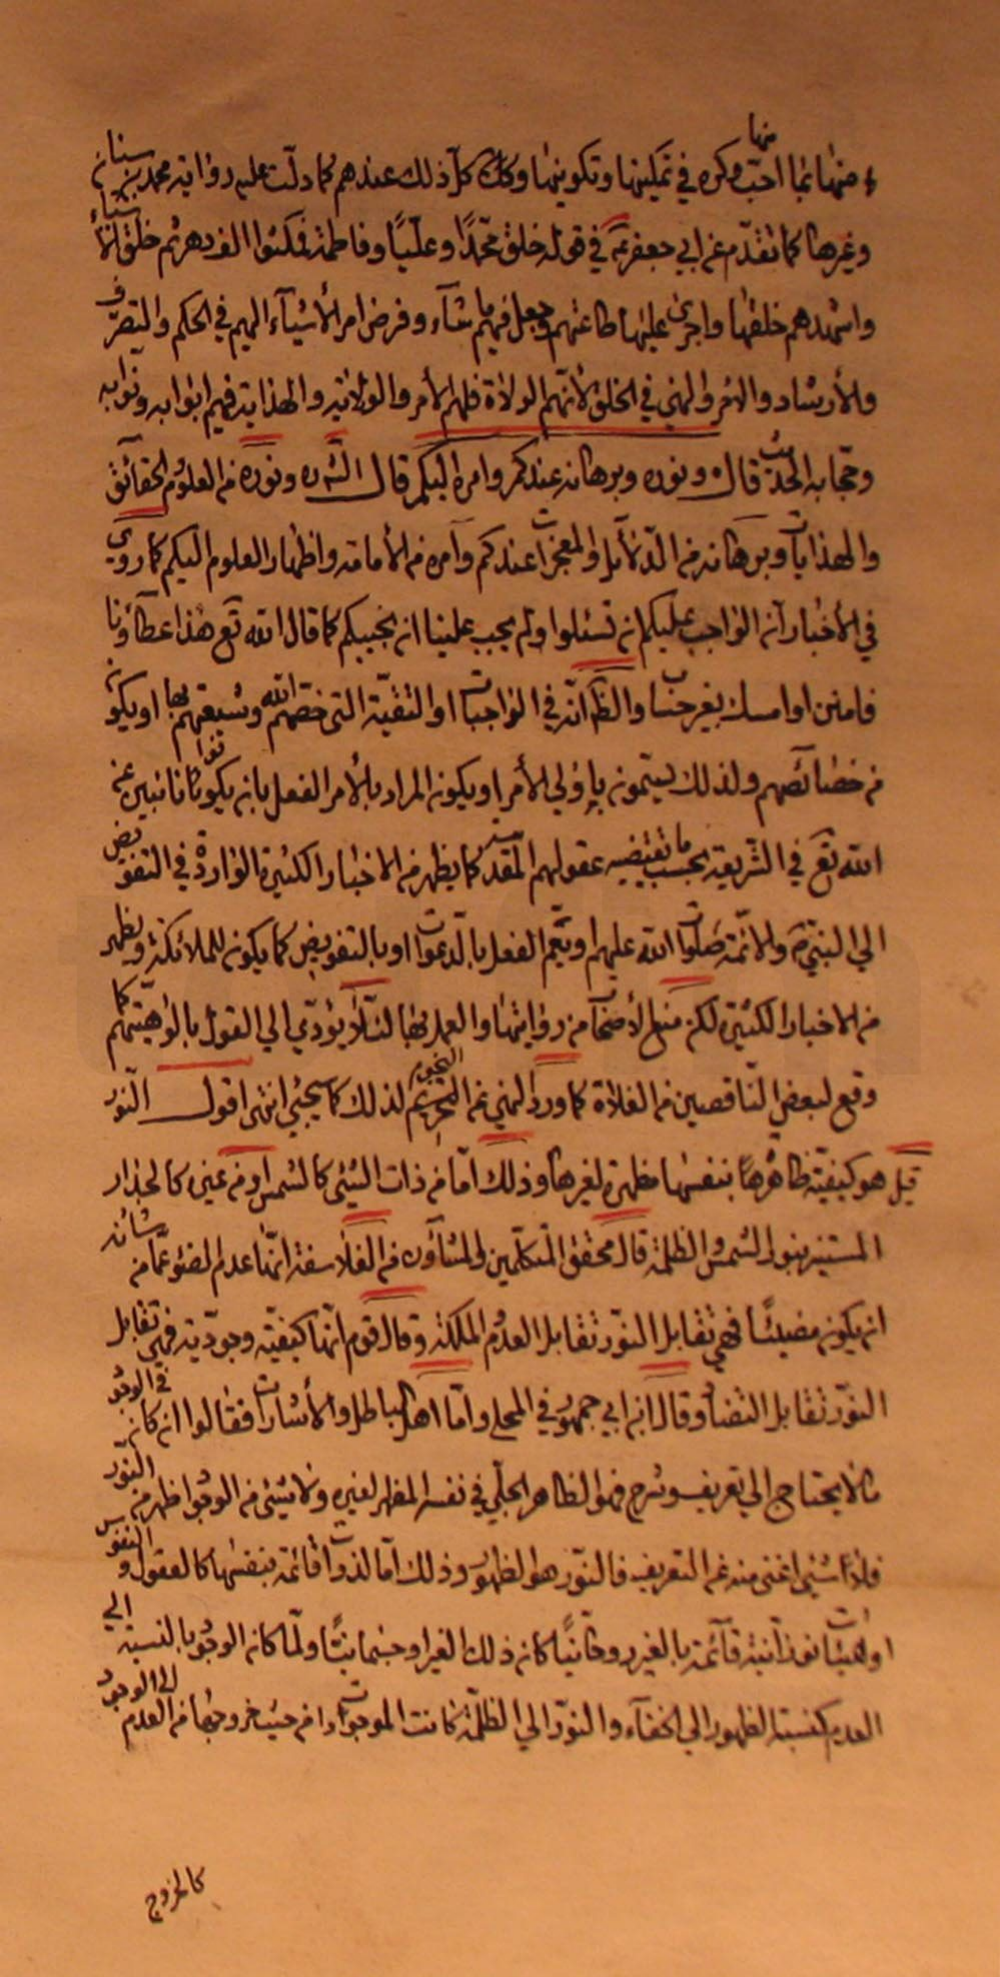 منها بما احب وكره في تمكينها وتكوينها وكان كل ذلك عندهم كما دلت عليه رواية محمد بن سنان
وغيرها كما تقدم عن ابي جعفر ع في قوله خلق محمدا وعليا وفاطمة فمكثوا الف دهر ثم خلق الأشياء
واشهدهم خلقها واجرى عليها طاعتهم وجعل فيهم ما شاء وفوض امر الأشياء اليهم في الحكم والتصرف
والأرشاد والامر والنهي في الخلق لأنهم الولاة فلهم الأمر والولاية والهداية فهم ابوابه ونوابه
وحجابه الحديث قال ونوره وبرهانه عندكم وامره اليكم قال الش ره ونوره من العلوم الحقائق
والهدايات وبرهانه من الدلائل والمعجزات عندكم وأمره من الأمامة واظهار العلوم اليكم كما روي
في الأخبار أنه الواجب عليكم ان تسئلوا ولم يجب علينا ان نجيبكم كما قال الله تع هذا عطاؤنا
فامنن او امسك بغير حساب والظ انه في الواجبات او التقية التي خصهم الله وشيعتهم بها او يكون
من خصائصهم ولذلك يسمون بأولي الأمر او يكون المراد بالأمر الفعل بان يكونوا كانوا نائبين عن
الله تع في الشريعة بحسب ما تقتضيه عقولهم المقدسة كما يظهر من الاخبار الكثيرة الواردة في التفويض
الى النبي ص والائمة صلوات الله عليهم او يعم الفعل بالدعوات او بالتفويض كما يكون للملائكة ويظهر
من الاخبار الكثيرة لكن منع الأصحاب من روايتها والعمل بها لئلا يؤدي الى القول بالوهيتهم كما
وقع لبعض الناقصين من الغلاة كما ورد النهي عن النجوم لذلك كما سيجئ انتهى اقول النور
قيل هو كيفية ظاهرة بنفسها مظهرة لغيرها وذلك اما من ذات الشئ كالشمس او من غيره كالجدار
المستنير بنور الشمس والظلمة قال محقق المتكلمين والمشاؤن من الفلاسفة انها عدم الضوء عما من شانه
ان يكون مضيئا فهي تقابل النور تقابل العدم والملكة وقال قوم انها كيفية وجودية فهي تقابل
النور تقابل التضاد وقال ابن ابي جمهور في المجلي واما اهل الباطل والأشارات فقالوا ان كان في الوجود
ما لا يحتاج الى تعريف وشرح فهو الظاهر الجلي في نفسه المظهر لغيره ولا شئ من الوجود اظهر من النور
فلا شئ اغنى منه عن التعريف فالنور هو الظهور وذلك اما لذوات قائمة بنفسها كالعقول والنفوس
او لهيئات نورانية قائمة بالغير روحانيا كان ذلك الغير او جسمانيا ولما كان الوجود بالنسبة الى
العدم كنسبة الظهور الى الخفاء والنور الى الظلمة كانت الموجودات من حيث خروجها من العدم الى الوجود
كالخروج